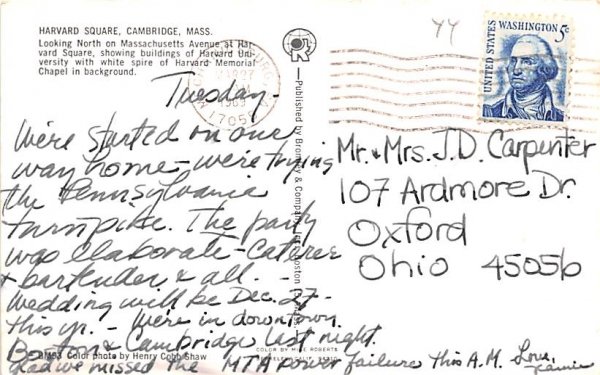 HARVARD SQUARE, CAMBRIDGE, MASS.
Looking North on Massachusetts Avenue at Har-
vard Square, showing buildings of Harvard Uni-
versity with white spire of Harvard Memorial
Chapel in background.
Tuesday-
We're started on our
way home - we're trying
the Pennsylvania
turnpike. The party
was elaborate - Caterer
+ bartender & all. -
Wedding will be Dec. 27-
this yr. - We're in downtown
Boston & Cambridge last night.
Glad we missed the MTA power failure this A.M. Love,
BM93 Color photo by Henry Cobb Shaw
Published by Bromley & Company, Boston
COLOR BY MIKE ROBERTS
17055
44
UNITED STATES
WASHINGTON 5¢
Mr. & Mrs. J.D. Carpenter
107 Ardmore Dr.
Oxford
Ohio 45056